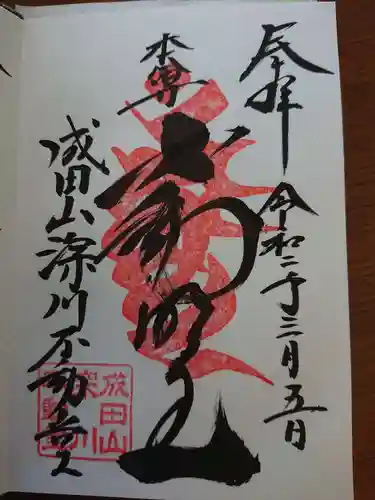 奉拝
令和二年三月五日
本尊
不動明王
成田山深川不動堂
成田山
深川
不動堂